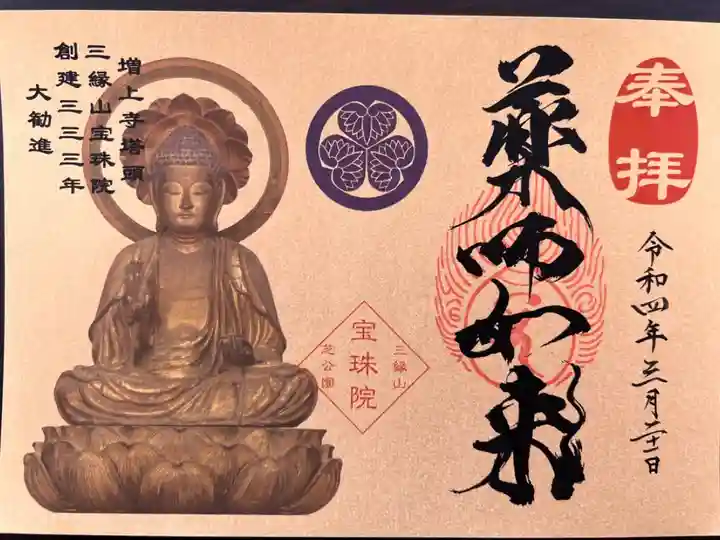 奉拝
令和四年三月二十一日
薬師如来
三縁山
宝珠院
芝公園
増上寺塔頭
三縁山宝珠院
創建三三三年
大勧進